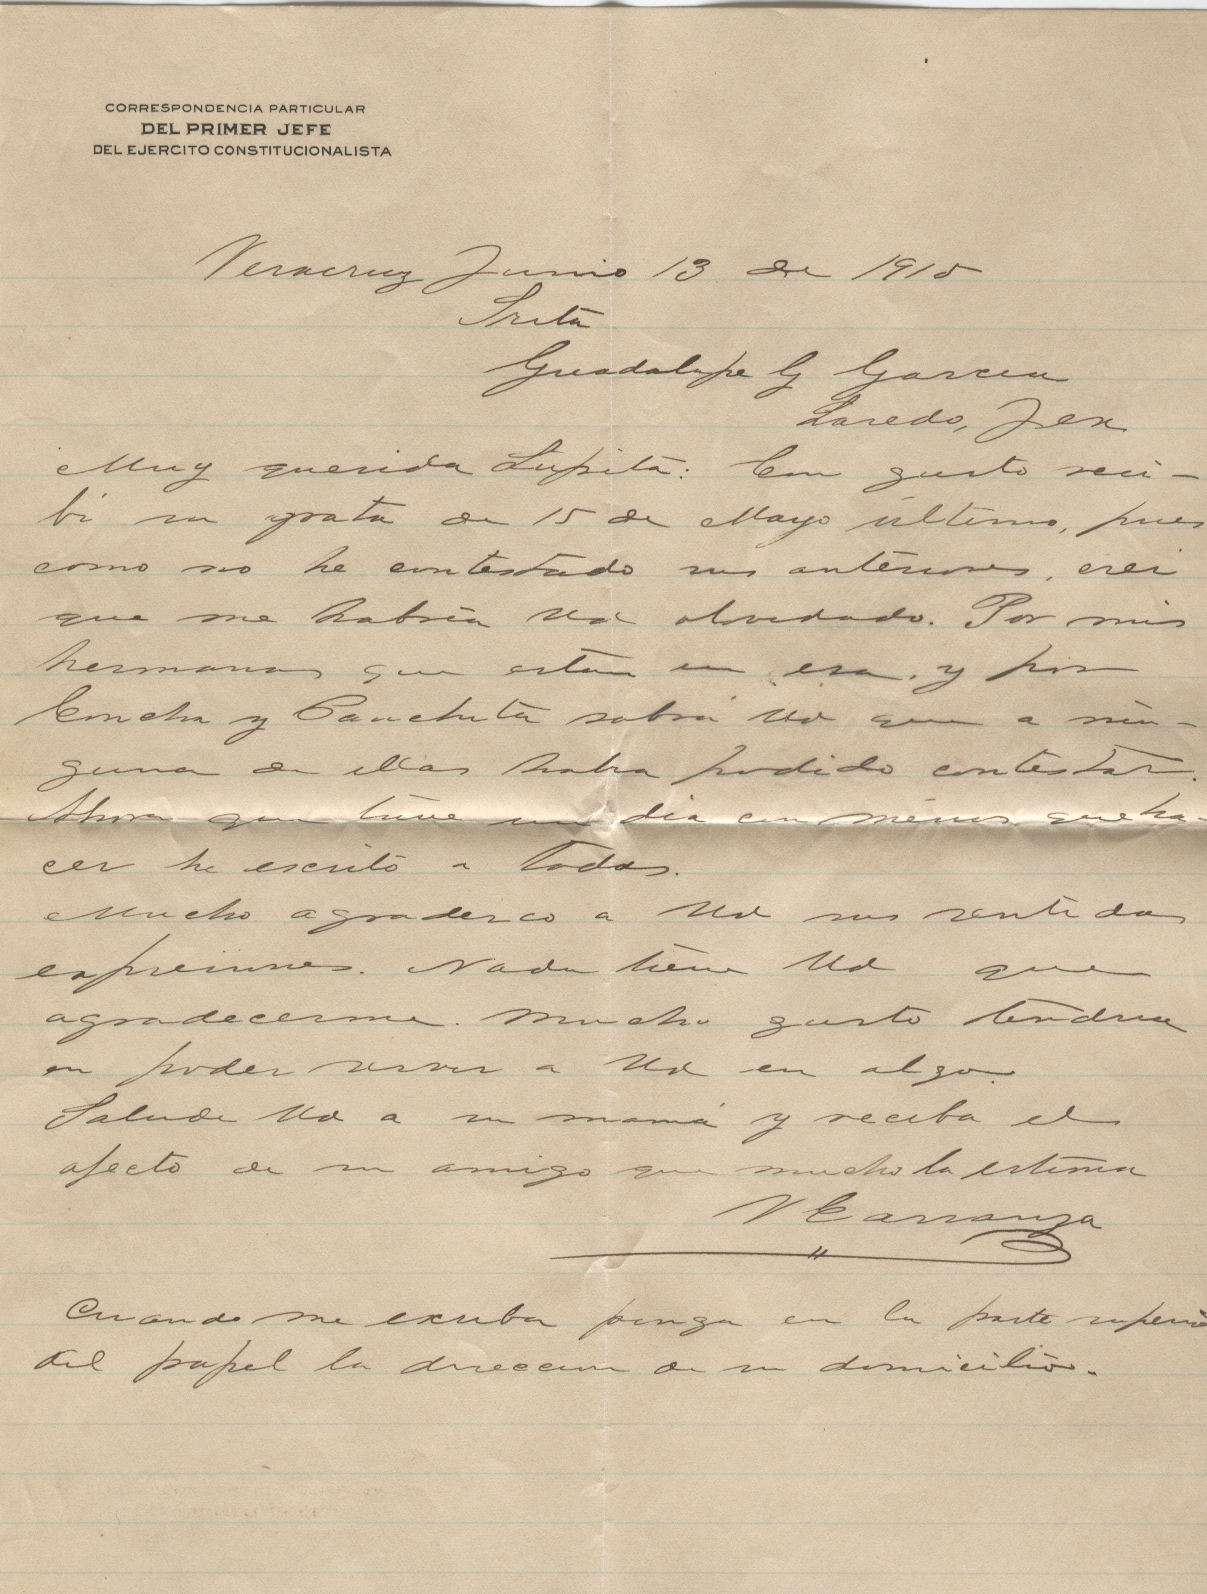 CORRESPONDENCIA PARTICULAR
DEL PRIMER JEFE
DEL EJERCITO CONSTITUCIONALISTA
Veracruz Junio 13 de 1915
Srita
Guadalupe G Garcia
Laredo, Tex
Muy querida Lupita: Con gusto reci-
bí su grata de 15 de Mayo último, pues
como no he contestado sus anteriores, crei
que me habria Ud olvidado. Por mis
hermanas que estan en esa, y por
Concha y Panchita sabrá Ud que a nin-
guna de ellas habia podido contestar.
Ahora que tuve un dia con menos queha-
cer he escrito a todas.
Mucho agradezco a Ud sus sentidas
expresiones. Nada tiene Ud que
agradecerme. Mucho gusto tendria
en poder servir a Ud en algo.
Salude Ud a su mamá y reciba el
afecto de su amigo que mucho la estima
V Carranza
Cuando me escriba ponga en la parte superior
del papel la direccion de su domicilio.